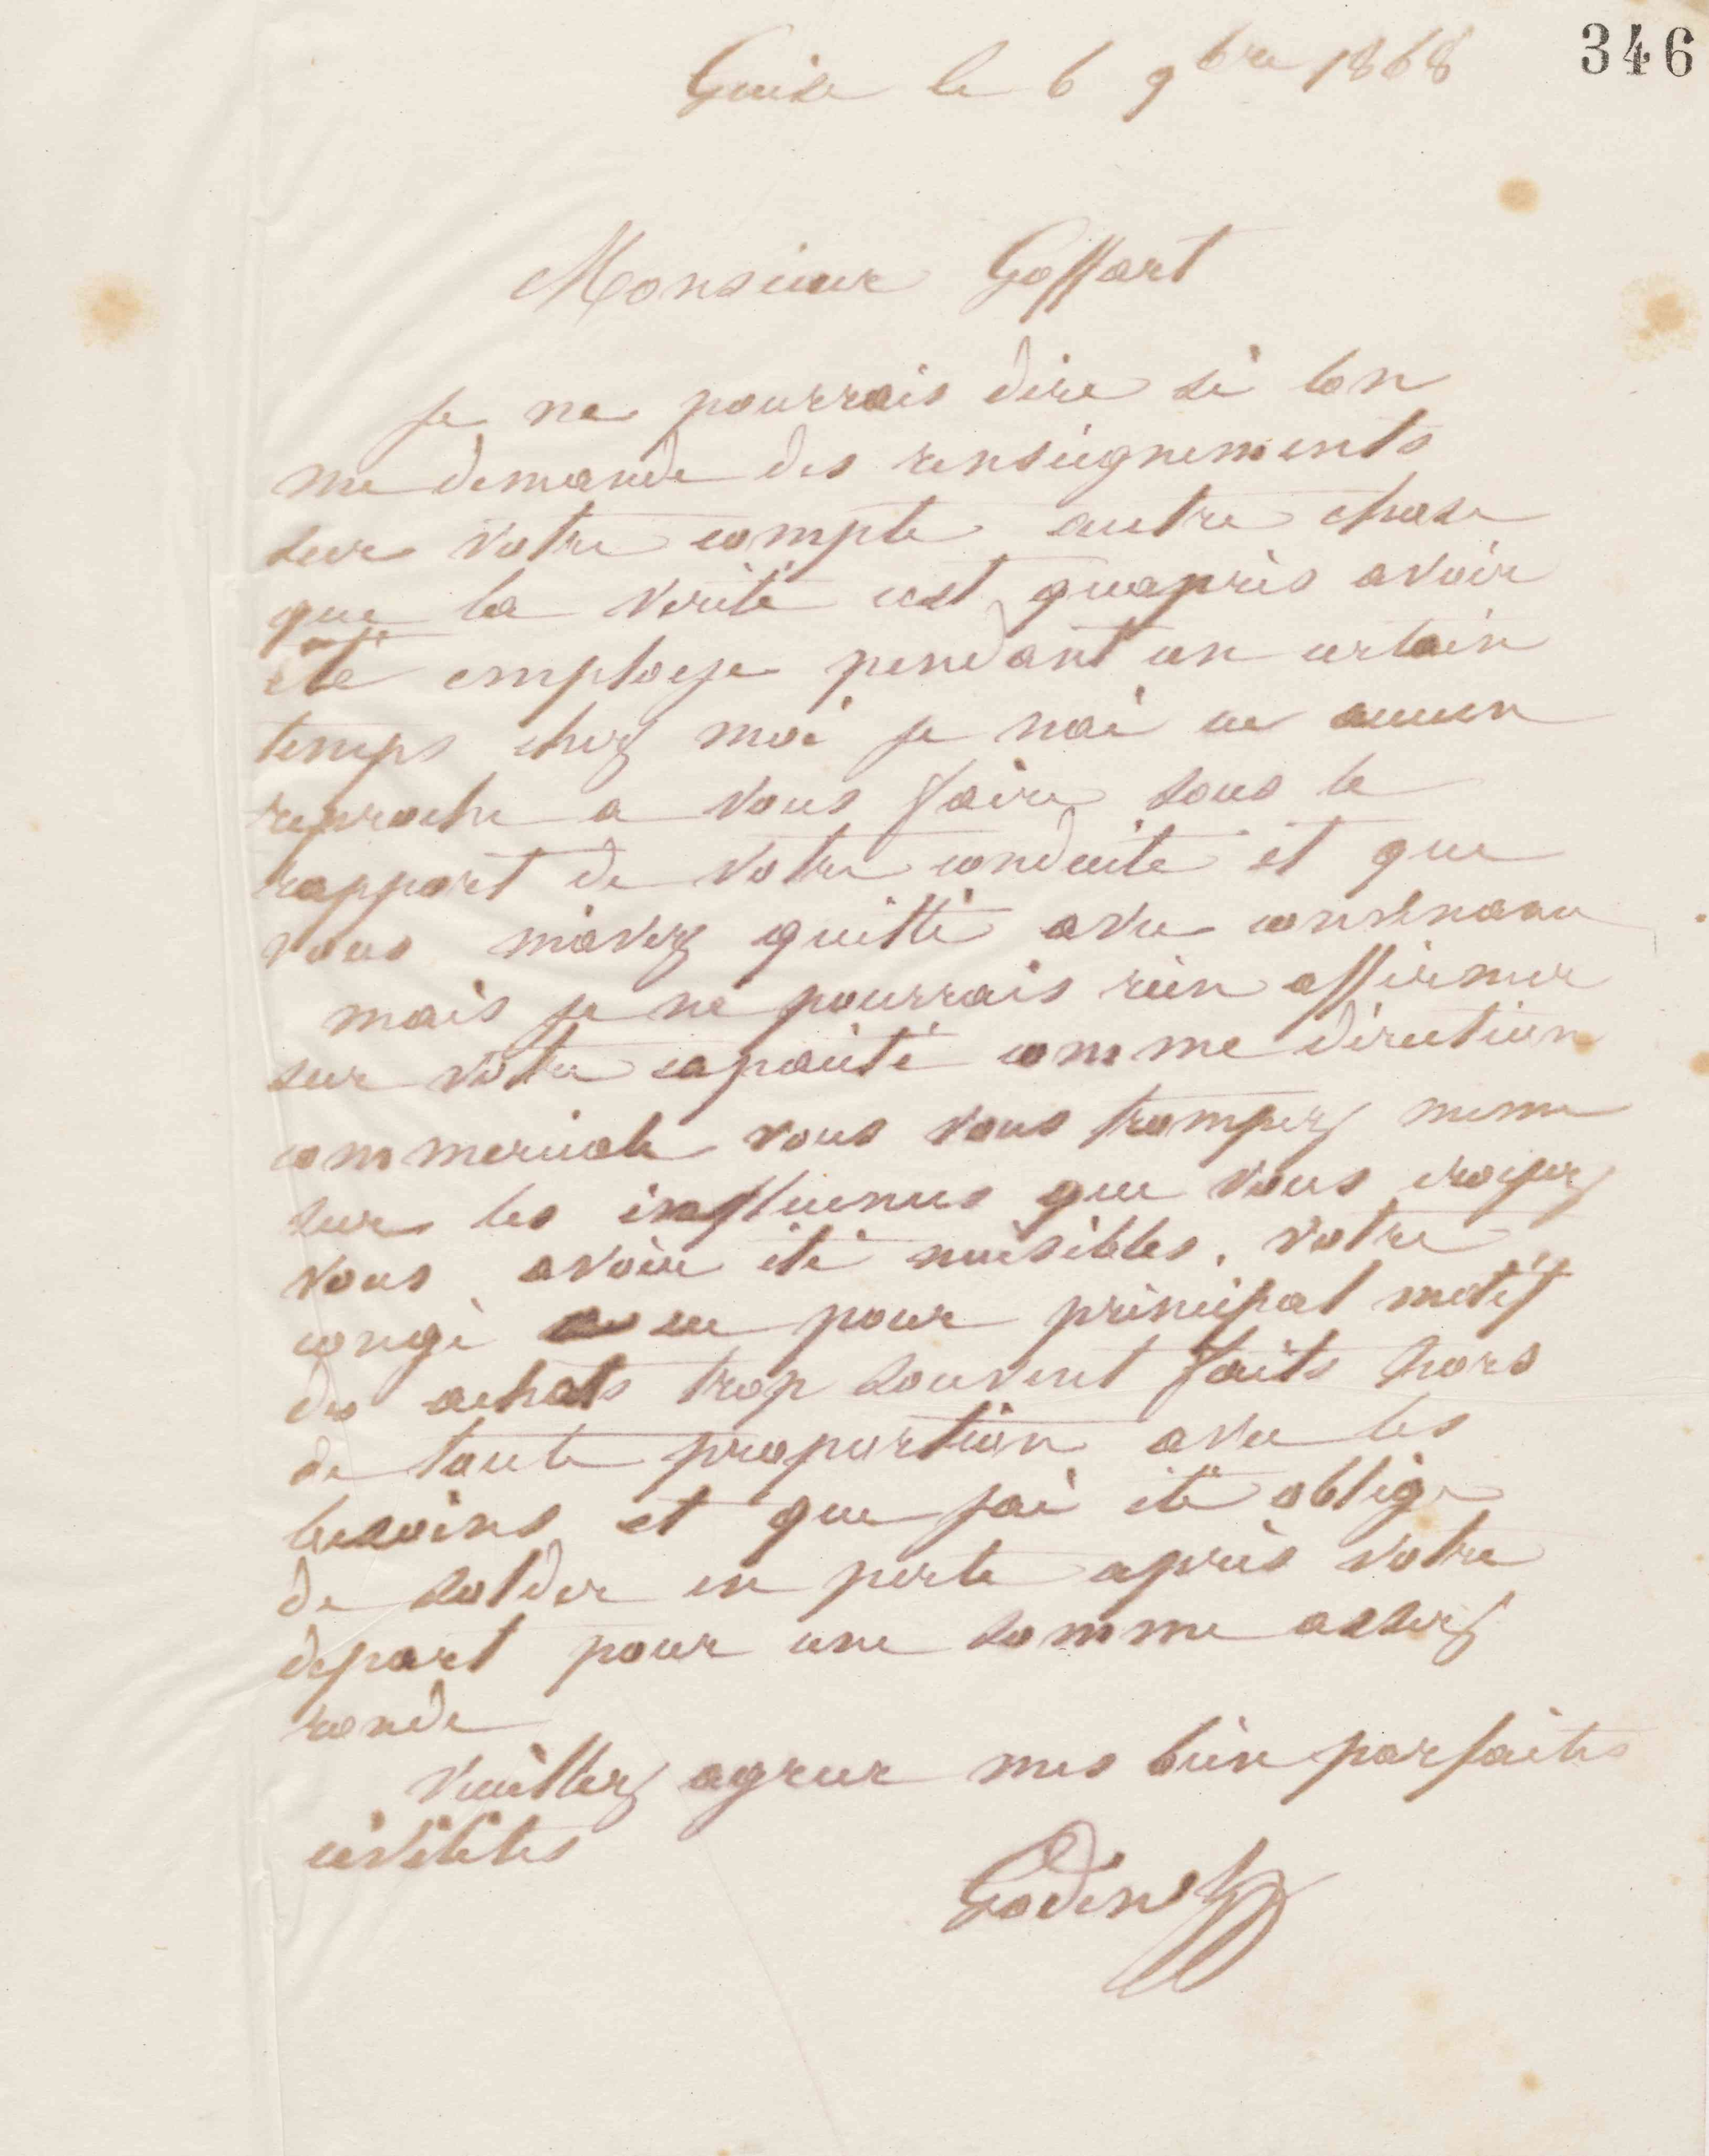 346
Guise le 6 9bre 1868
Monsieur Goffart
Je ne pourrais dire si lon
me demande des renseignements
sur votre compte autre chose
que la verité cest quaprès avoir
été employe pendant un certain
temps chez moi je nai eu aucun
reproche a vous faire sous le
rapport de votre conduite et que
vous m'avez quitté avec convenance
mais je ne pourrais rien affirmer
sur votre capacité comme direction
commerciale vous vous trompez meme
sur les influences que vous croyez
vous avoir été nuisibles. votre
congé a eu pour principal motif
des achats trop souvent faits hors
de toute proportion avec les
besoins et que jai été oblige
de solder en perte après votre
depart pour une somme assez
ronde
Veuillez agreer mes bien parfaites
civilités
Godin